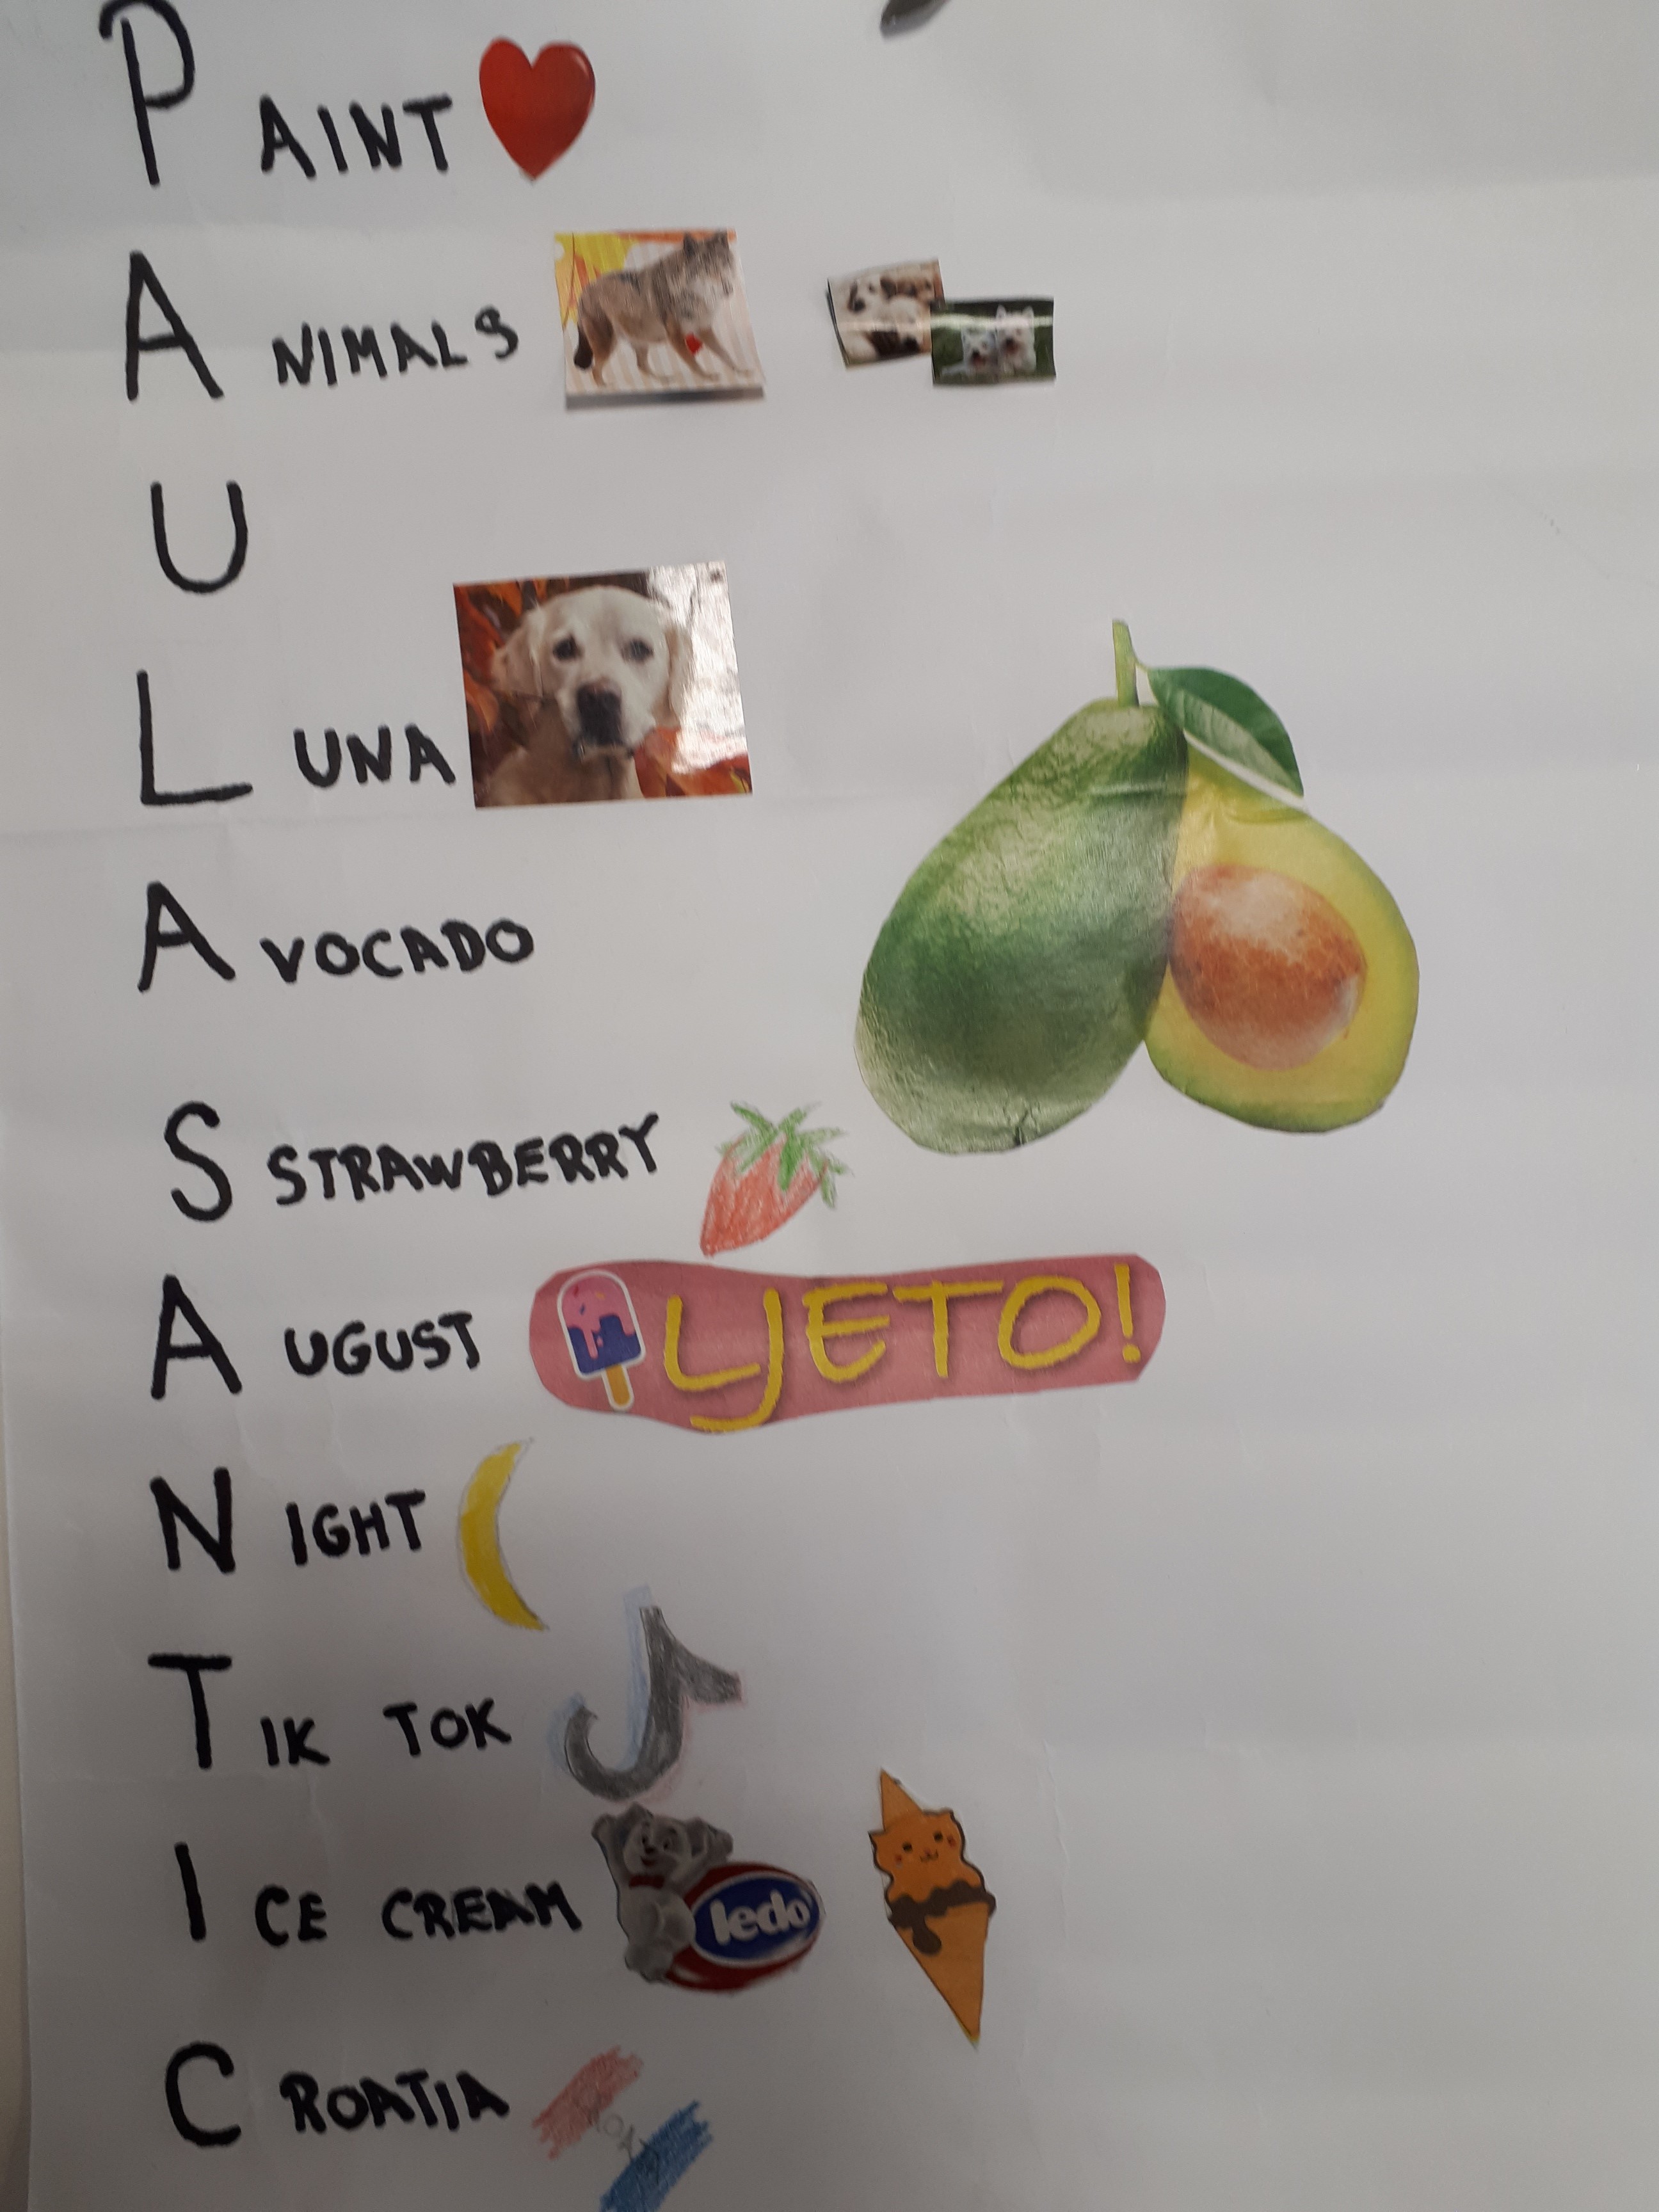 P AINT
A NIMALS
U
L UNA
A VOCADO
S STRAWBERRY
A UGUST LJETO!
N IGHT
T IK TOK
I CE CREAM ledo
C ROATIA